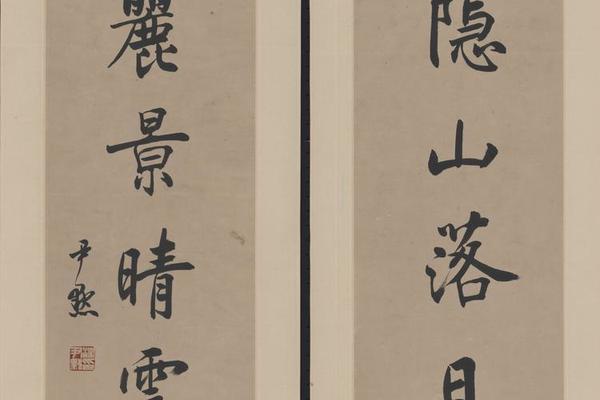 隐山落
麗景晴雲
尹默